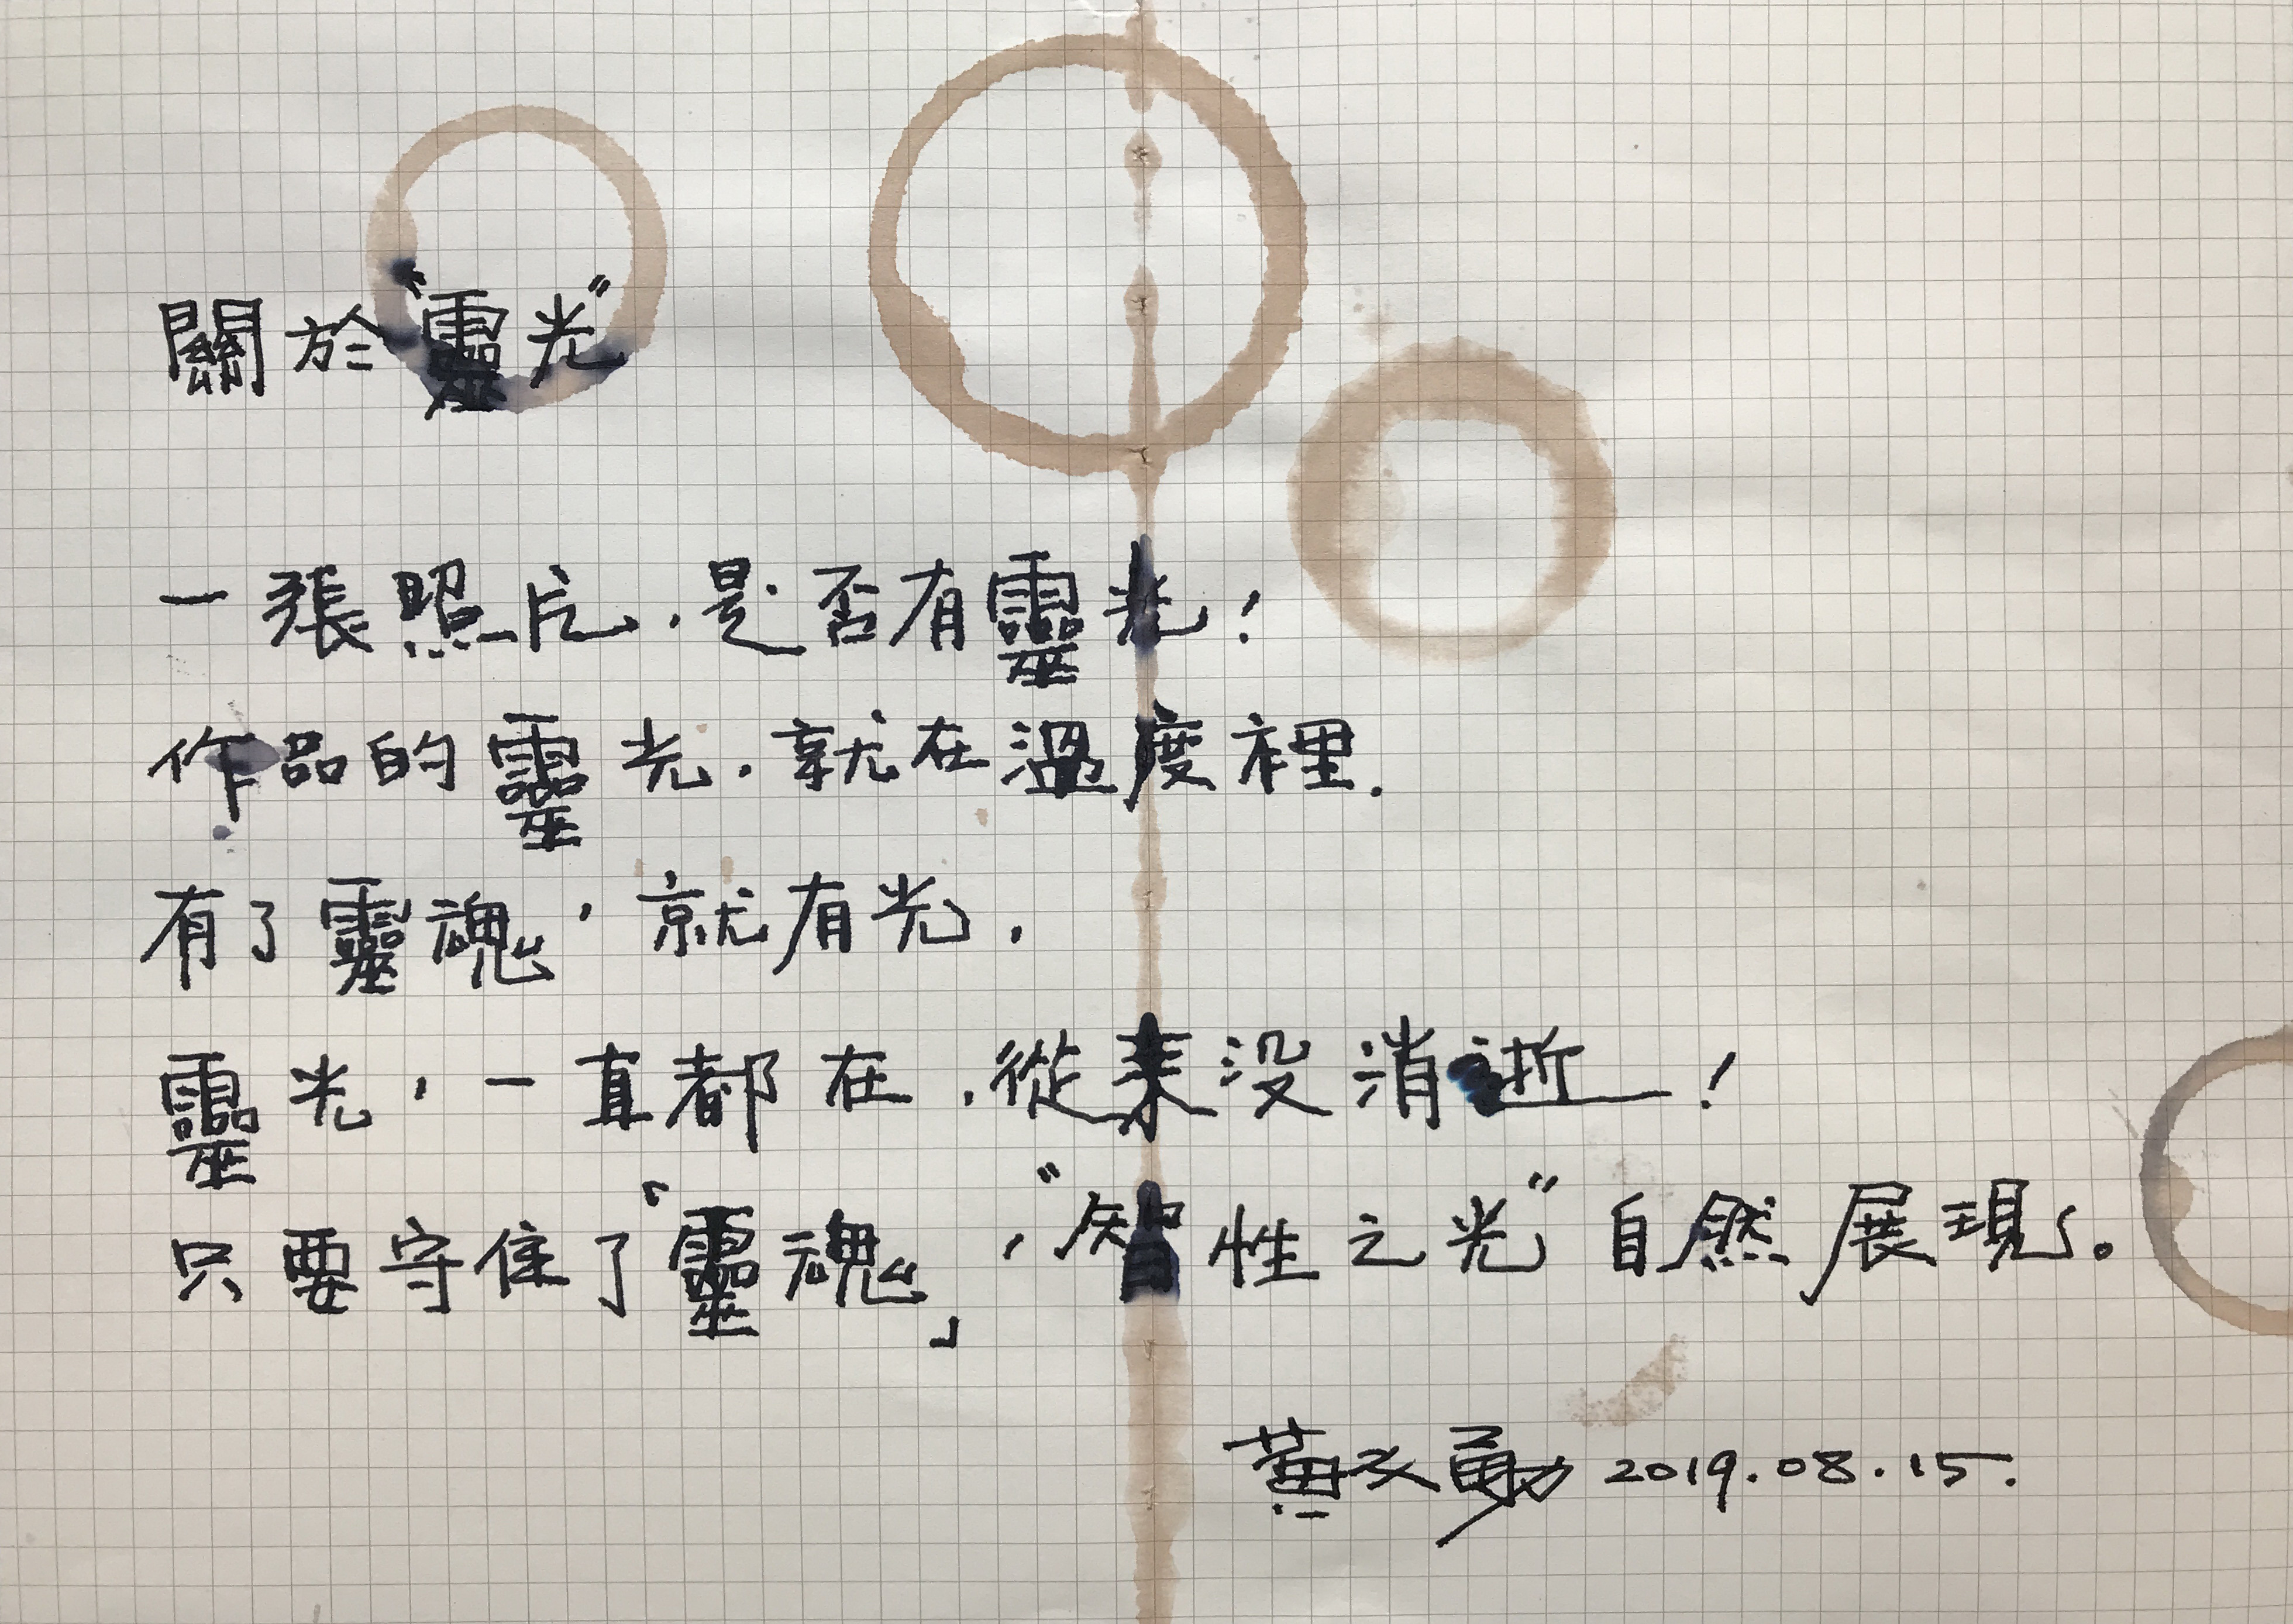 關於“靈光”
一張照片，是否有靈光！
作品的靈光，就在溫度裡．
有了靈魂，就有光，
靈光，一直都在，從來没消逝！
只要守住了「靈魂」，“智性之光”自然展現。
黃文勇 2019.08.15.